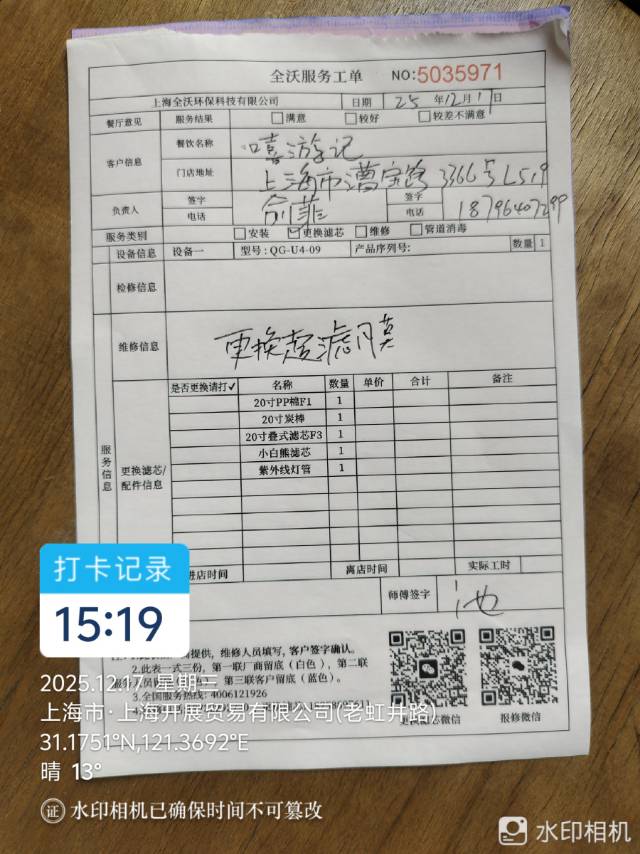 全沃服务工单 NO:5035971
上海全沃环保科技有限公司 日期 25 年12月17日
餐厅意见 服务结果 满意 较好 较差不满意
客户信息 餐饮名称 嘻游记
门店地址 上海市漕宝路3366号L519
负责人 签字 俞菲 签字
电话 电话 18796407299
服务类别 安装 更换滤芯 维修 管道消毒
设备信息 设备一 型号:QG-U4-09 产品序列号: 数量 1
检修信息
维修信息 更换超滤膜
服务信息
更换滤芯/
配件信息
是否更换请打✓ 名称 数量 单价 合计 备注
20寸PP棉F1 1
20寸炭棒 1
20寸叠式滤芯F3 1
小白熊滤芯 1
紫外线灯管 1
进店时间 离店时间 实际工时
师傅签字 池
提供，维修人员填写，客户签字确认。
2.此表一式三份，第一联厂商留底（白色），第二联
第三联客户留底（蓝色）。
3.全国服务热线：4006121926
微信 报修微信
打卡记录
15:19
2025.12.17 星期三
上海市·上海开展贸易有限公司(老虹井路)
31.1751°N,121.3692°E
晴 13°
证 水印相机已确保时间不可篡改
水印相机